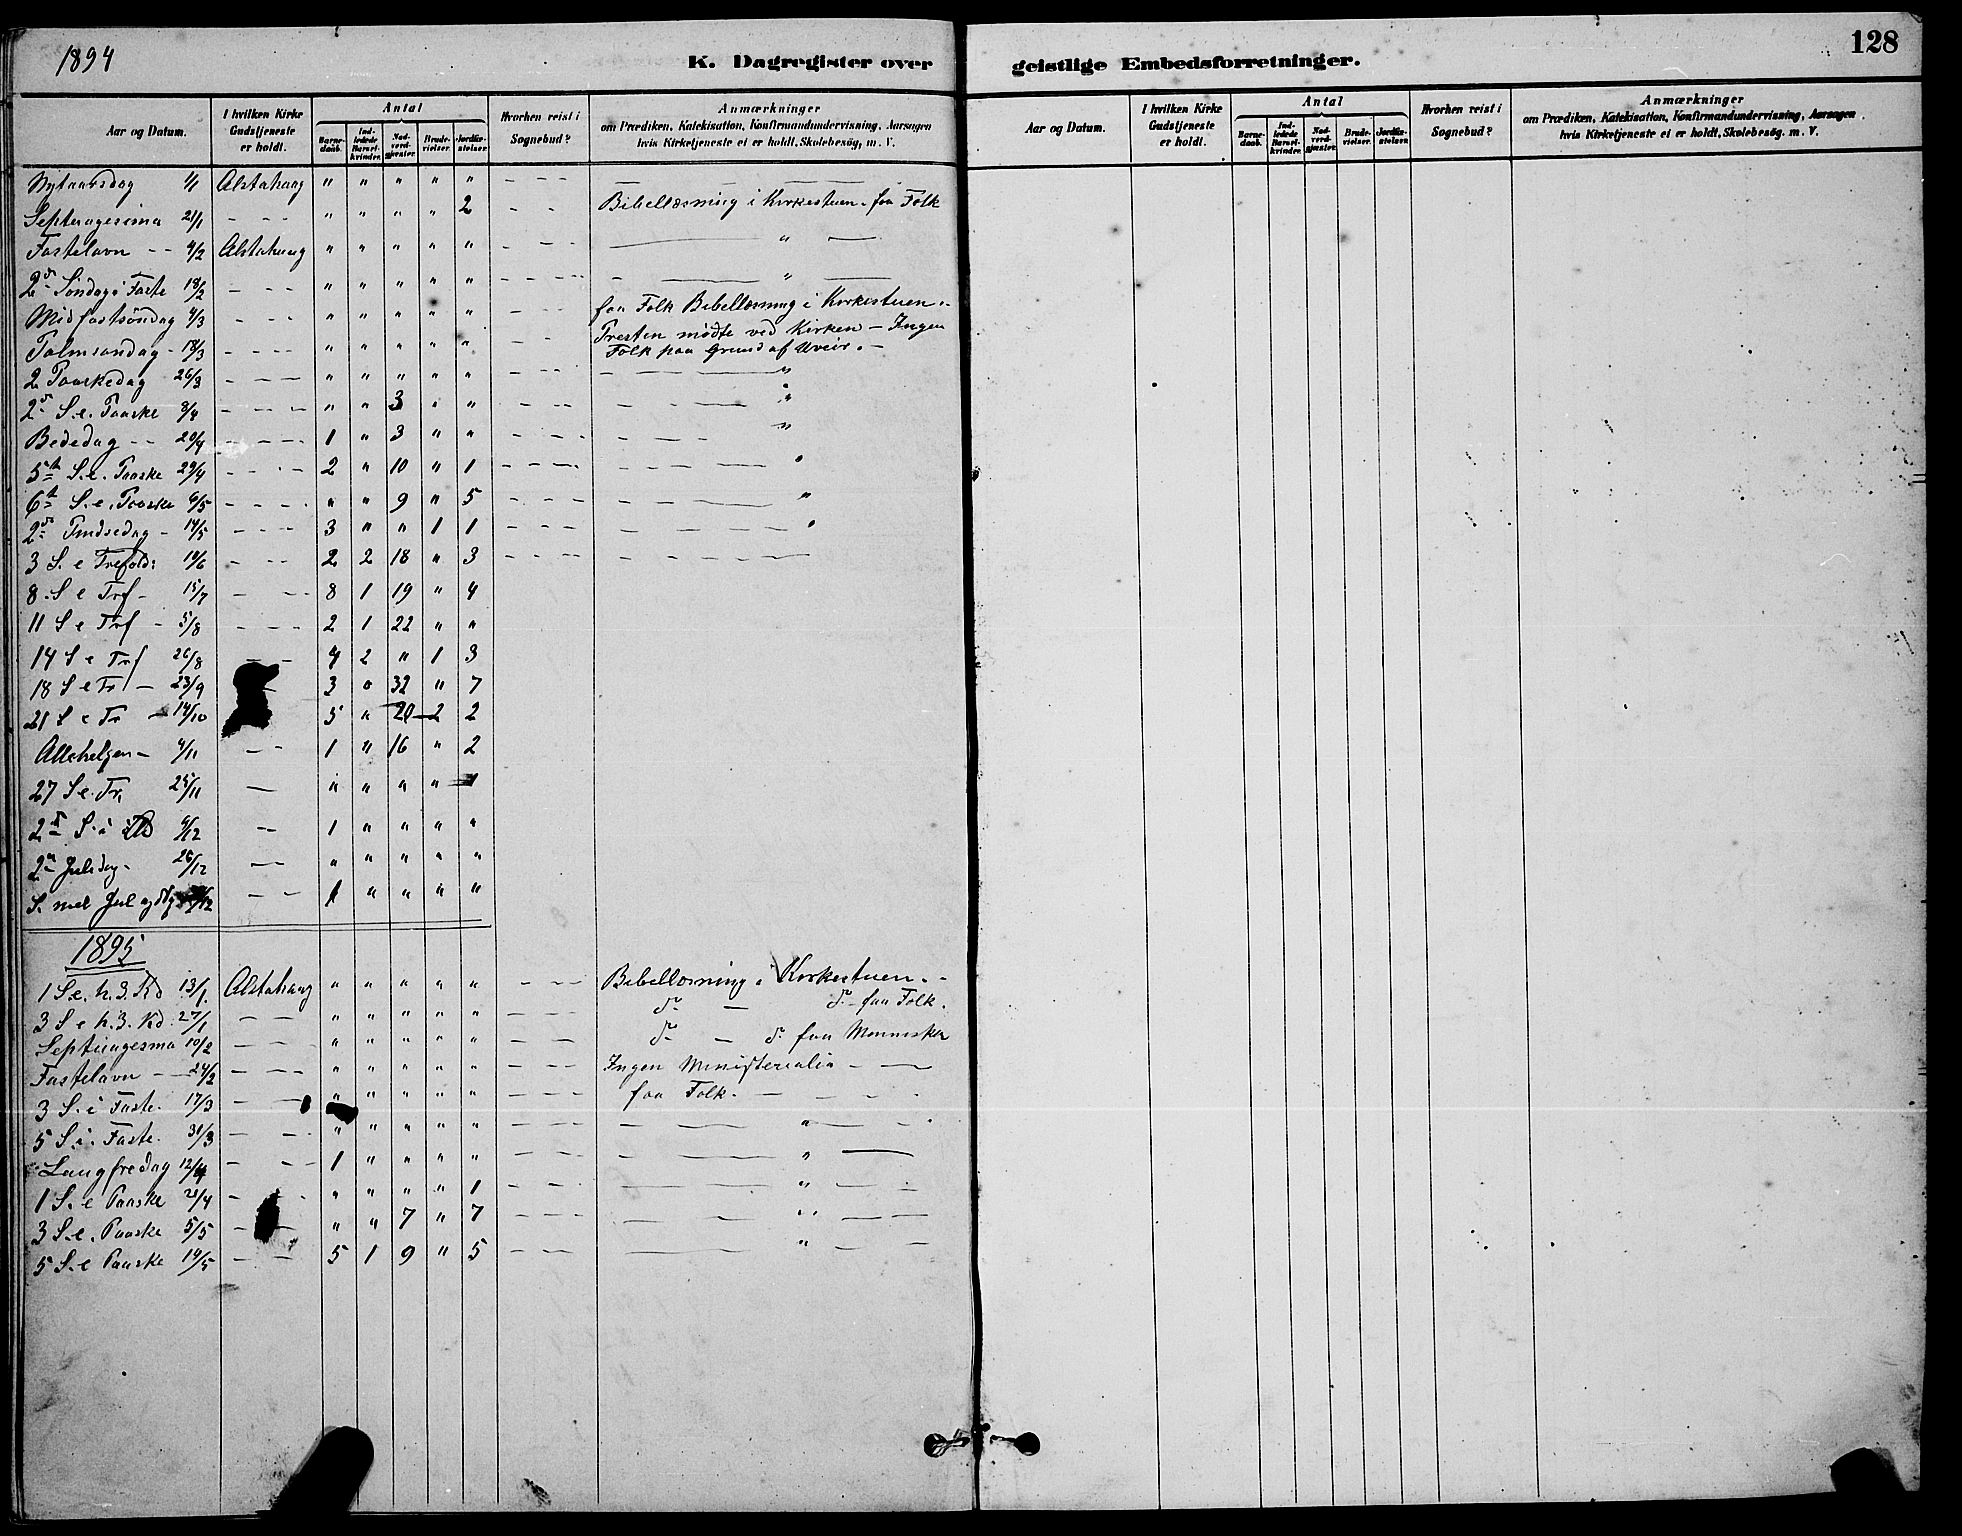 1894
K. Dagregister over geistlige Embedsforretninger.
128
Aar og Datum. | I hvilken Kirke Gudstjeneste er holdt. | Antal | Barnedaab. | Indledede Barselkvinder. | Nadverdgjæster. | Brudevielser. | Jordfæstelser. | Hvorhen reist i Sognebud? | Anmærkninger om Prædiken, Katekisation, Konfirmandundervisning, Aarsagen hvis Kirketjeneste ei er holdt, Skolebesög, m. V.
Aar og Datum. | I hvilken Kirke Gudstjeneste er holdt. | Antal | Barnedaab. | Indledede Barselkvinder. | Nadverdgjæster. | Brudevielser. | Jordfæstelser. | Hvorhen reist i Sognebud? | Anmærkninger om Prædiken, Katekisation, Konfirmandundervisning, Aarsagen hvis Kirketjeneste ei er holdt, Skolebesög, m. V.
Nytaarsdag 1/1 Alstahaug " " " " " - - -
Septuagesima 21/1 - - - " " " " 2 - - Bibellæsning i Kirkestuen. faa Folk
Fastelavn - - 4/2 Alstahaug " " " " " - - - "
2den Söndag i Faste 18/2 - - - " " " " " - - - "
Midfastsöndag 4/3 - - - " " " " " - - - faa Folk Bibellæsning i Kirkestuen.
Palmsöndag - 18/3 - - - " " " " " - - Presten mödte ved Kirken - Ingen
Folk paa Grund af Uveir. -
2 Paaskedag 26/3 - - - " " " " " - - - "
2den S. e. Paaske 8/4 - - - " " 3 " " - - - "
Bededag - - 20/4 - - - 1 " 3 " " - - - "
5te S. e. Paaske 29/4 - - - 2 " 10 " 1 - - - "
6te S. e. Paaske 6/5 - - - " " 9 " 5 - - - "
2den Pindsedag - 14/5 - - - 3 " " 1 1 - - - "
3 S. e Trefold: 10/6 - - - 2 2 18 " 3 - - -
8. S e Trf - 15/7 - - - 8 1 19 " 4
11 S e Trf - 5/8 - - - 2 1 22 " "
14 S e Trf 26/8 - - 4 2 " 1 3
18 S e Tr - 23/9 3 " 32 " 7
21 S e Tr - 14/10 5 " 20 2 2
Allehelgen - 4/11 - - 1 " 16 " 2
27 S e. Tr. 25/11 - " " " " 1
2den S. i Ad /12 - - 1 " " " "
2en Juledag - 26/12 - - " " " " "
S. mel Jul og /12 - - 1 " " " "
1895
1 S. e. h. 3. Kd 13/1 Alstahaug " " " " " - - - Bibellæsning i Kirkestuen. -
3 S e h. 3. Kd. 27/1 - - " " " " " - - - do - do - faa Folk.
Septuagesima 10/2 - - " " " " " - - do - do faa Mennesker
Fastelavn - 24/2 - - - " " " " " - - - Ingen Ministerialia - -
3 S. i Faste. 17/3 - - " " " " " - - - faa Folk. - - - -
5 S. i. Faste. 31/3 - - " " " " " - - - "
Langfredag 12/4 - - 1 " " " " - - - "
1 S. e Paaske 21/4 - - " " " " 1 - - - "
3 S. e. Paaske 5/5 - - " " 7 " 7 - - - "
5 S. e Paaske 19/5 - - 5 1 9 " 5 - - - "